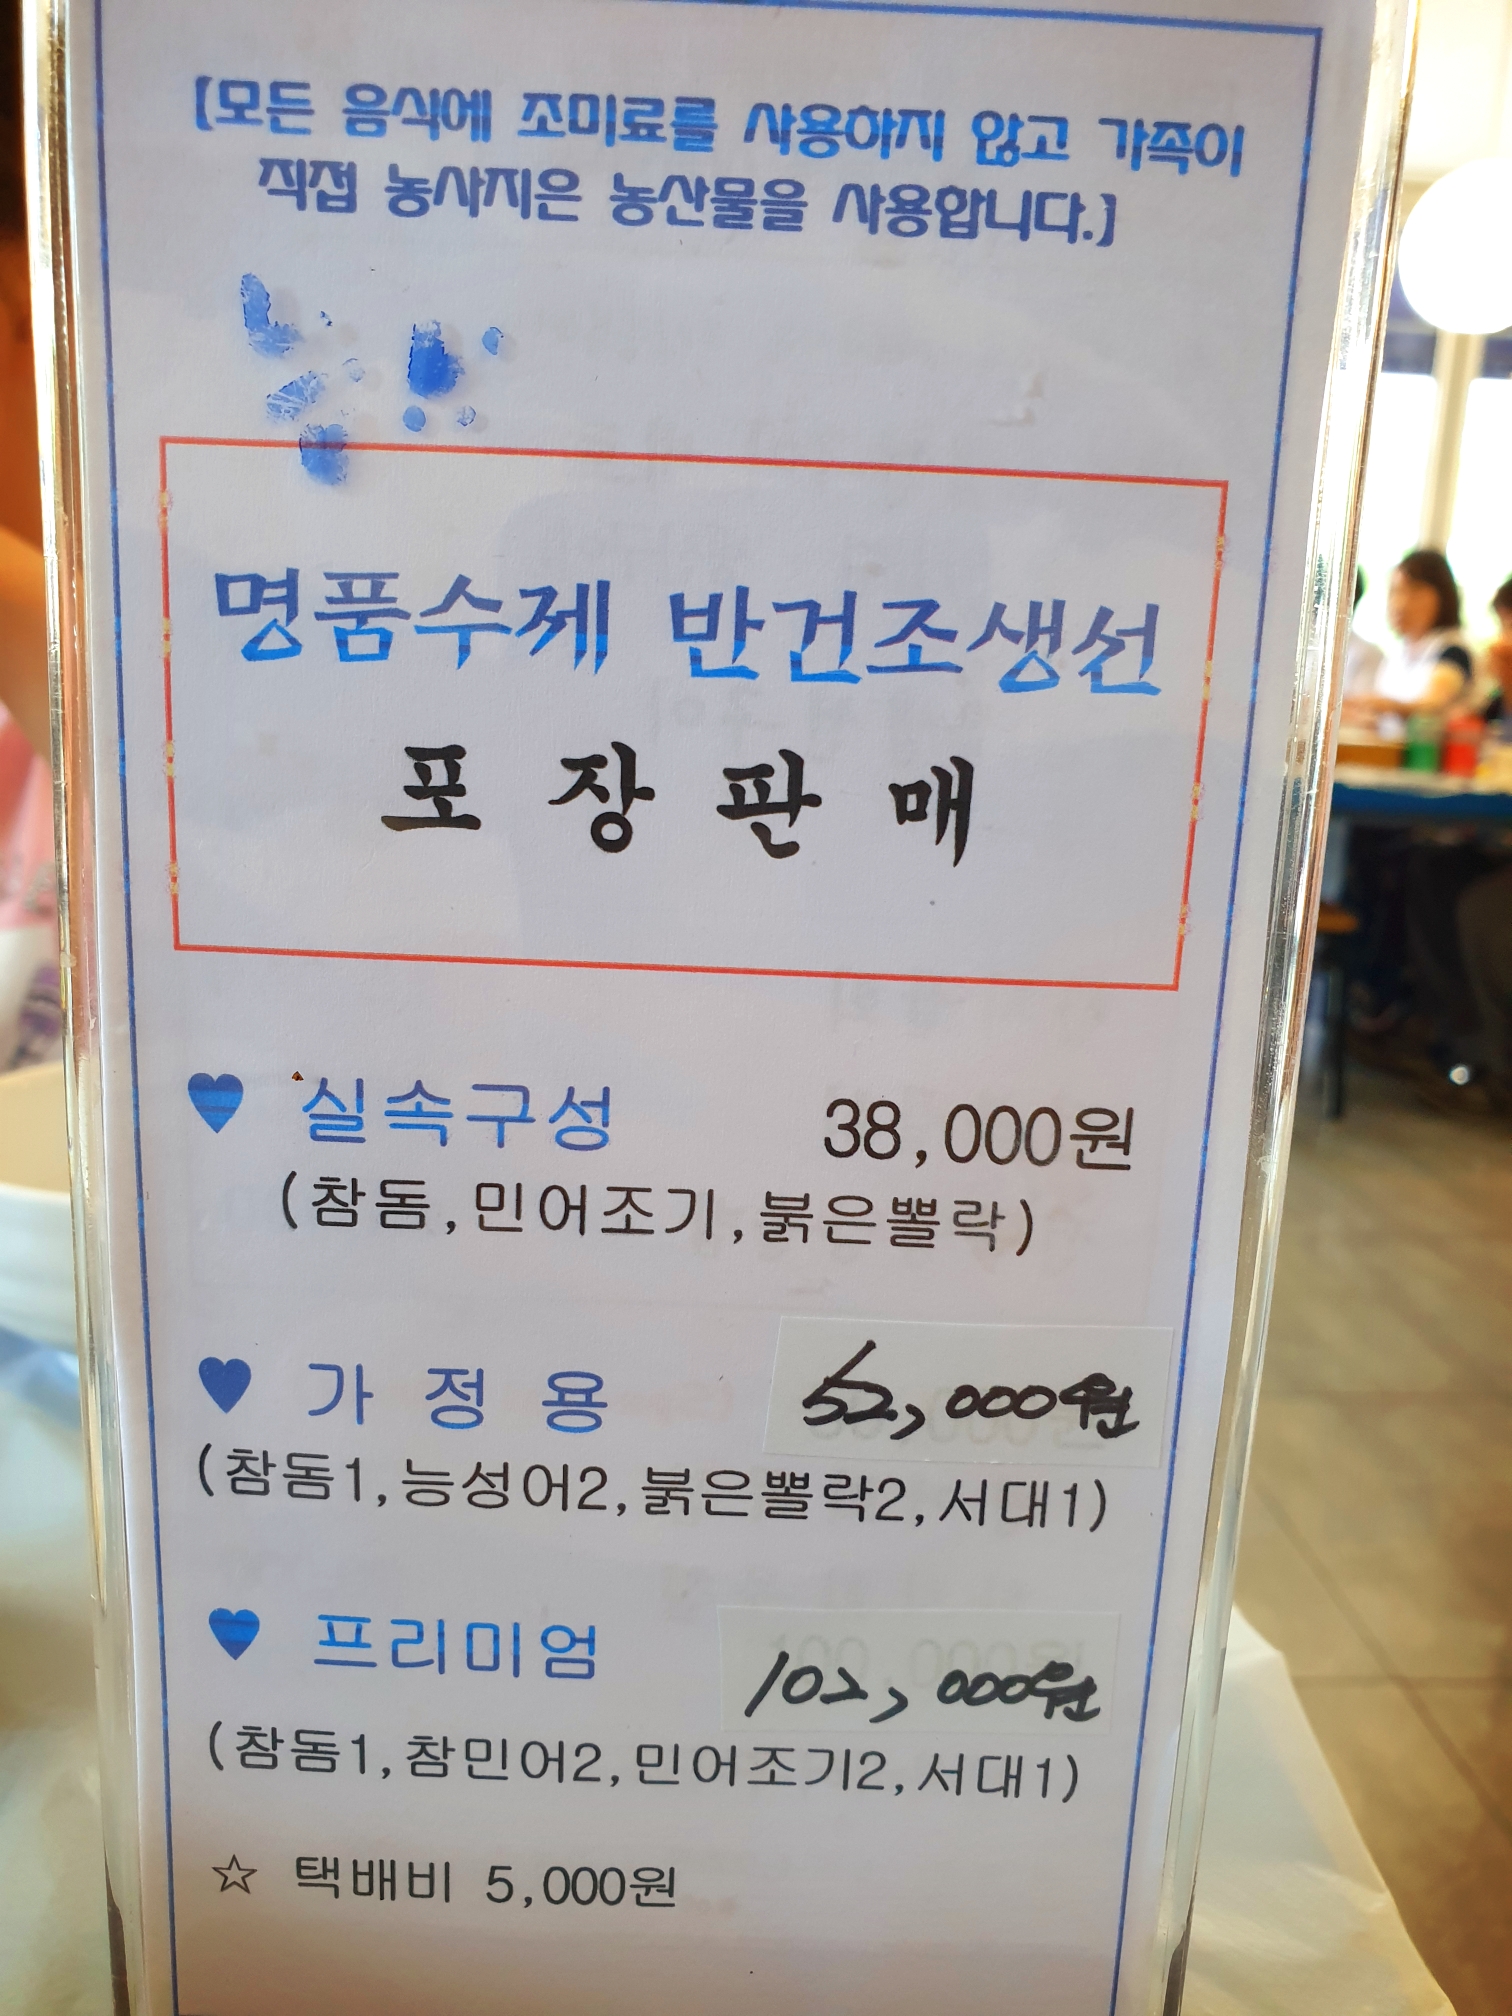 [모든 음식에 조미료를 사용하지 않고 가족이
직접 농사지은 농산물을 사용합니다.]
명품수제 반건조생선
포 장 판 매
♥ 실속구성 38,000원
(참돔,민어조기,붉은뽈락)
♥ 가 정 용 52,000원
(참돔1,능성어2,붉은뽈락2,서대1)
♥ 프리미엄 102,000원
(참돔1,참민어2,민어조기2,서대1)
☆ 택배비 5,000원